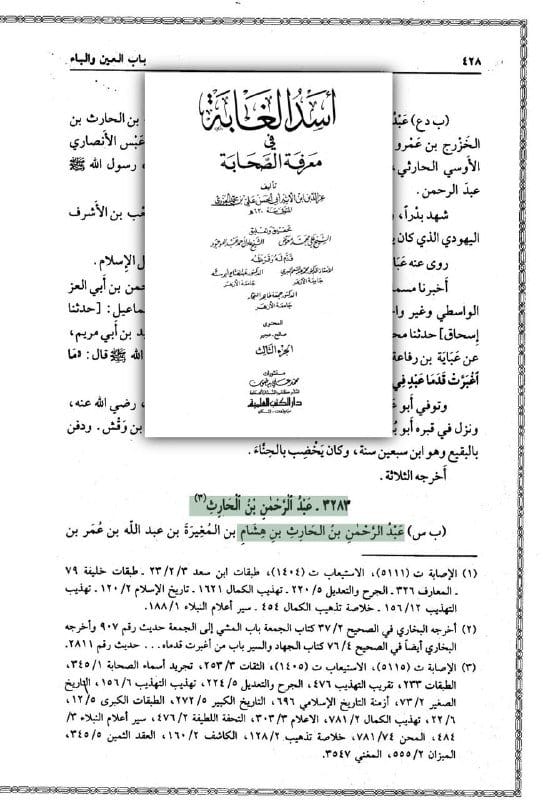 ٤٢٨
باب العين والباء
(ب د ع) عَبْدُ
بن الحارث بن
الخَزْرج بن عَمْرو
عَبْس الأنصاري
الأوسي الحارثي،
رسول الله ﷺ
عبدَ الرحمن.
شهد بدراً، و
ب بن الأشرف
اليهودي الذي كان
روى عنه عَبَا
ل الإسلام.
أخبرنا مسما
حمن بن أبي العز
الواسطي وغير واح
ماعيل: [حدثنا
إسحاق] حدثنا محـ
د بن أبي مريم،
عن عَبَاية بن رفاعة
ﷺ قال: «مَا
أغْبَرَّتْ قَدَمَا عَبْدٍ فِي
وتوفي أبو عَـ
، رضي الله عنه،
ونزل في قبره أبو بُـ
بن وَقْش. ودفن
بالبقيع وهو ابن سبعين سنة، وكان يَخْضِب بالحِنَّاء.
أخرجه الثلاثة.
أسد الغابة
في
معرفة الصحابة
تأليف
المتوفى سنة ٦٣٠هـ
تحقيق وتعليق
الشيخ علي محمد معوض
الشيخ عادل أحمد عبد الموجود
قدم له وقرظه
جامعة الأزهر
جامعة الأزهر
جامعة الأزهر
المحتوى
الجزء الثالث
منشورات
محمد علي بيضون
دار الكتب العلمية
بيروت - لبنان
٣٢٨٣ ـ عَبْدُ ٱلرَّحْمٰنِ بْنُ ٱلْحَارِثِ(٣)
(ب س) عَبْدُ الرَّحْمٰنِ بنُ الحَارِثِ بنِ هِشَامِ بن المُغِيرَةَ بن عبد الله بن عُمَر بن
(١) الإصابة ت (٥١١١)، الاستيعاب ت (١٤٠٤)، طبقات ابن سعد ٢٣/٢/٣ ـ طبقات خليفة ٧٩
ـ المعارف ٣٢٦ ـ الجرح والتعديل ٢٢٠/٥ ـ تهذيب الكمال ١٦٢١ ـ تاريخ الإسلام ١٢٠/٢ ـ تهذيب
التهذيب ١٥٦/١٢ ـ خلاصة تذهيب الكمال ٤٥٤ ـ سير أعلام النبلاء ١٨٨/١.
(٢) أخرجه البخاري في الصحيح ٣٧/٢ كتاب الجمعة باب المشي إلى الجمعة حديث رقم ٩٠٧ وأخرجه
البخاري أيضاً في الصحيح ٧٦/٤ كتاب الجهاد والسير باب من أغبرت قدماه... حديث رقم ٢٨١١.
(٣) الإصابة ت (٥١١٥)، الاستيعاب ت (١٤٠٥)، الثقات ٢٥٣/٣، تجريد أسماء الصحابة ٣٤٥/١،
الطبقات ٢٣٣، تقريب التهذيب ٤٧٦، الجرح والتعديل ٢٢٤/٥، تهذيب التهذيب ١٥٦/٦، التاريخ
الصغير ٧٣/٢، أزمنة التاريخ الإسلامي ٦٩٦، التاريخ الكبير ٢٧٢/٥، الطبقات الكبرى ١٢/٥،
٢٢/٦، تهذيب الكمال ٧٨١/٢، الاعلام ٣٠٣/٣، التحفة اللطيفة ٤٧٦/٢، سير أعلام النبلاء ٣/
٤٨٤، المحن ٧٨١/٧٤، خلاصة تذهيب ١٢٨/٢، الكاشف ١٦٠/٢، العقد الثمين ٣٤٥/٥،
الميزان ٥٥٥/٢، المغني ٣٥٤٧.